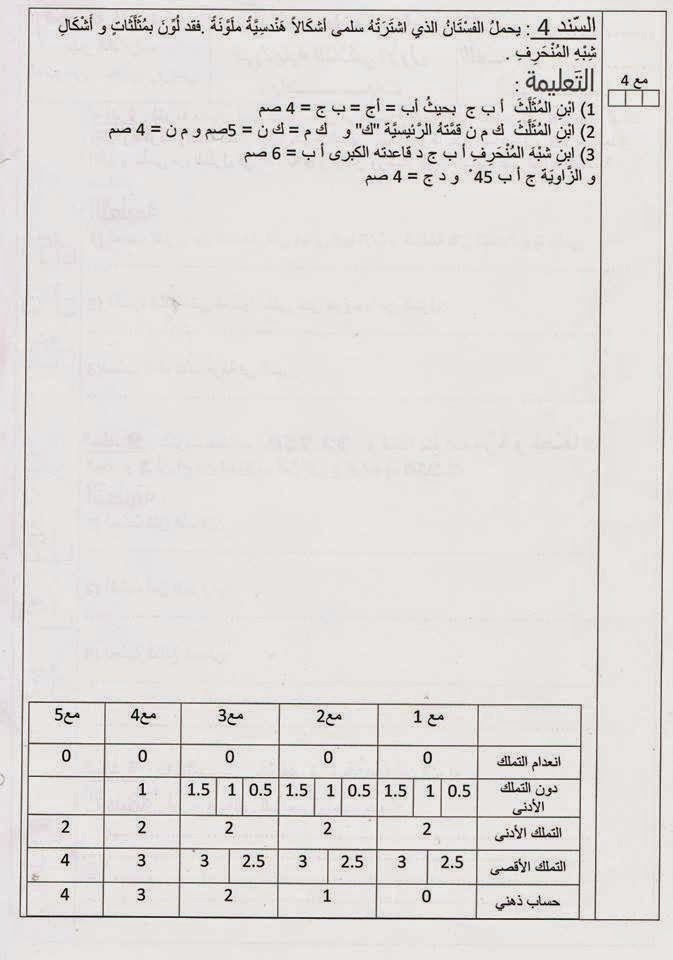 السّند 4 : يحملُ الفسْتَانُ الذي اشترَتْهُ سلمى أشكالاً هَنْدسِيَّةً ملَوَّنَةً .فقد لُوِّنَ بمُثَلَّثَاتٍ و أشْكَالِ
شِبْهِ المُنْحَرِفِ .
مع 4
التَعليمة :
1) ابْنِ المُثَلَّثَ أ ب ج بحيثُ أب = أج = ب ج = 4 صم
2) ابْنِ المُثَلَّثَ ك م ن قمَّتهُ الرَّئيسيَّة "ك" و ك م = ك ن = 5صم و م ن = 4 صم
3) ابنِ شبْهَ المُنْحَرِفِ أ ب ج د قاعدته الكبرى أ ب = 6 صم
و الزَّاويَة ج أ ب 45° و د ج = 4 صم
مع 1 مع2 مع3 مع4 مع5
انعدام التملك 0 0 0 0 0
دون التملك الأدنى 0.5 1 1.5 0.5 1 1.5 0.5 1 1.5 1
التملك الأدنى 2 2 2 2 2
التملك الأقصى 2.5 3 2.5 3 2.5 3 3 4
حساب ذهني 0 1 2 3 4